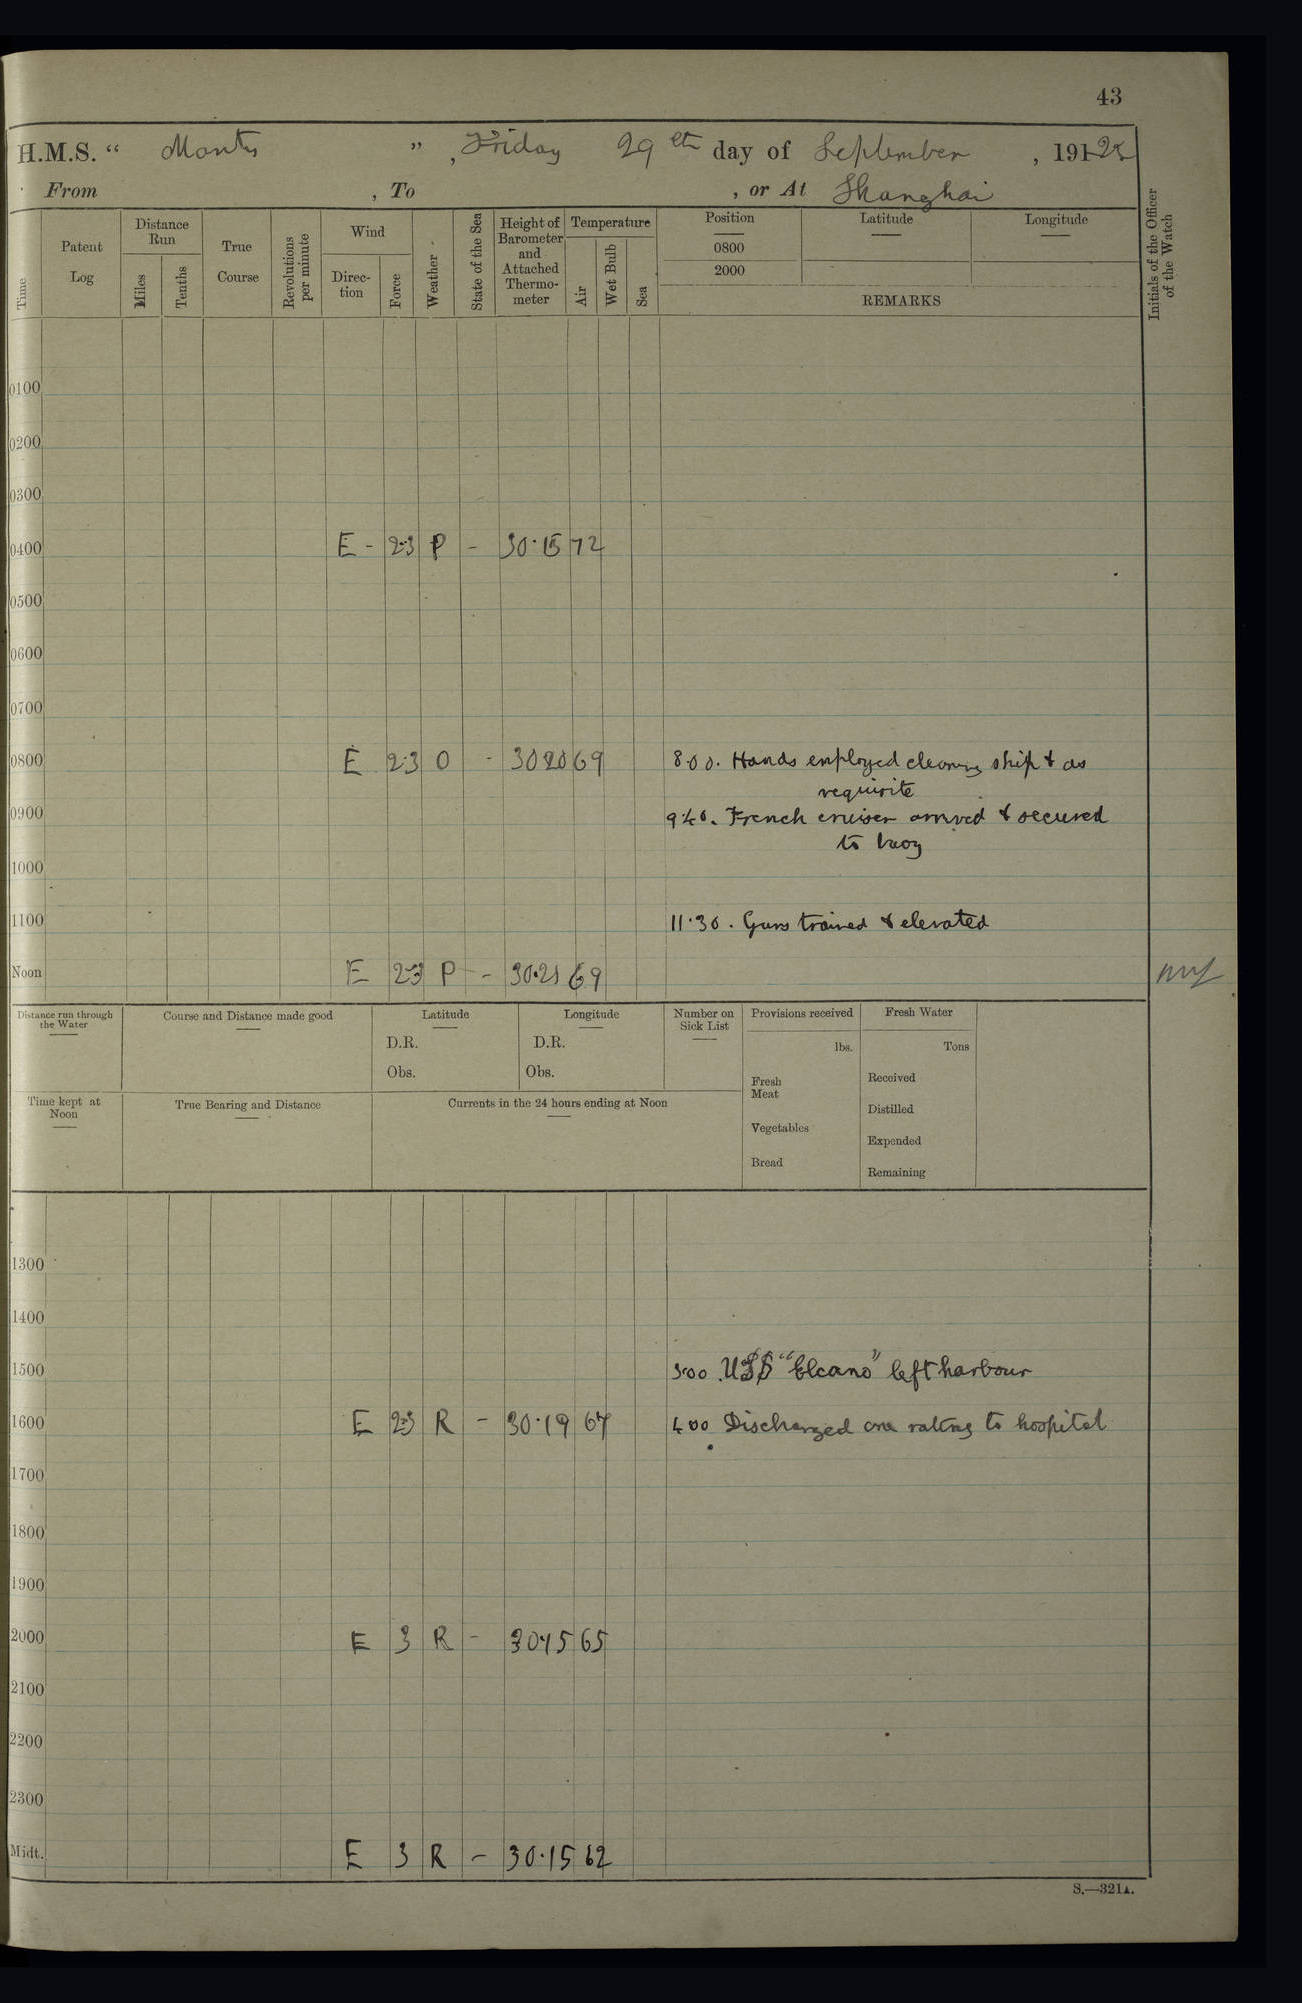 43
H.M.S. “ Mantis ” , Friday 29th day of September , 19122
From , To , or At Shanghai
Time
Patent Log
Distance Run
Miles
Tenths
True Course
Revolutions per minute
Wind
Direc-tion
Force
Weather
State of the Sea
Height of Barometer and Attached Thermo-meter
Temperature
Air
Wet Bulb
Sea
Position
0800
2000
Latitude
Longitude
REMARKS
Initials of the Officer of the Watch
0100
0200
0300
0400 E - 2·3 P - 30·15 72
0500
0600
0700
0800 E 2·3 O - 30 20 69 8·00. Hands employed cleaning ship & as
requisite
0900 9·40. French cruiser arrived & secured
to buoy
1000
1100 11·30. Guns trained & elevated
Noon E 2·3 P - 30·21 69
Distance run through the Water
Course and Distance made good
Latitude
D.R.
Obs.
Longitude
D.R.
Obs.
Number on Sick List
Provisions received
lbs.
Fresh Meat
Vegetables
Bread
Fresh Water
Tons
Received
Distilled
Expended
Remaining
Time kept at Noon
True Bearing and Distance
Currents in the 24 hours ending at Noon
1300
1400
1500 3·00. USS “Elcano” left harbour
1600 E 2·3 R - 30·19 67 4·00 Discharged one rating to hospital
1700
1800
1900
2000 E 3 R - 30·15 65
2100
2200
2300
Midt. E 3 R - 30·15 62
S.—321A.